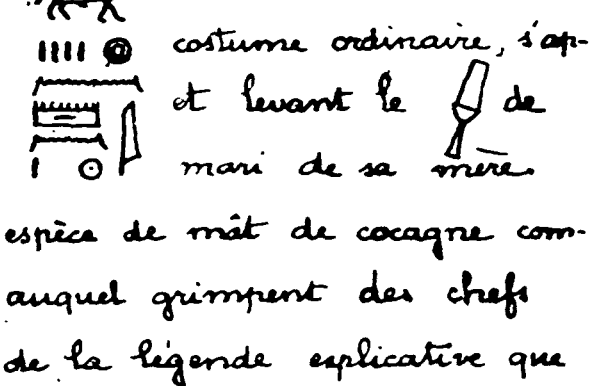 costume ordinaire, s'ap-
et levant le de
mari de sa mère.
espèce de mât de cocagne com-
auquel grimpent des chefs
de la légende explicative que